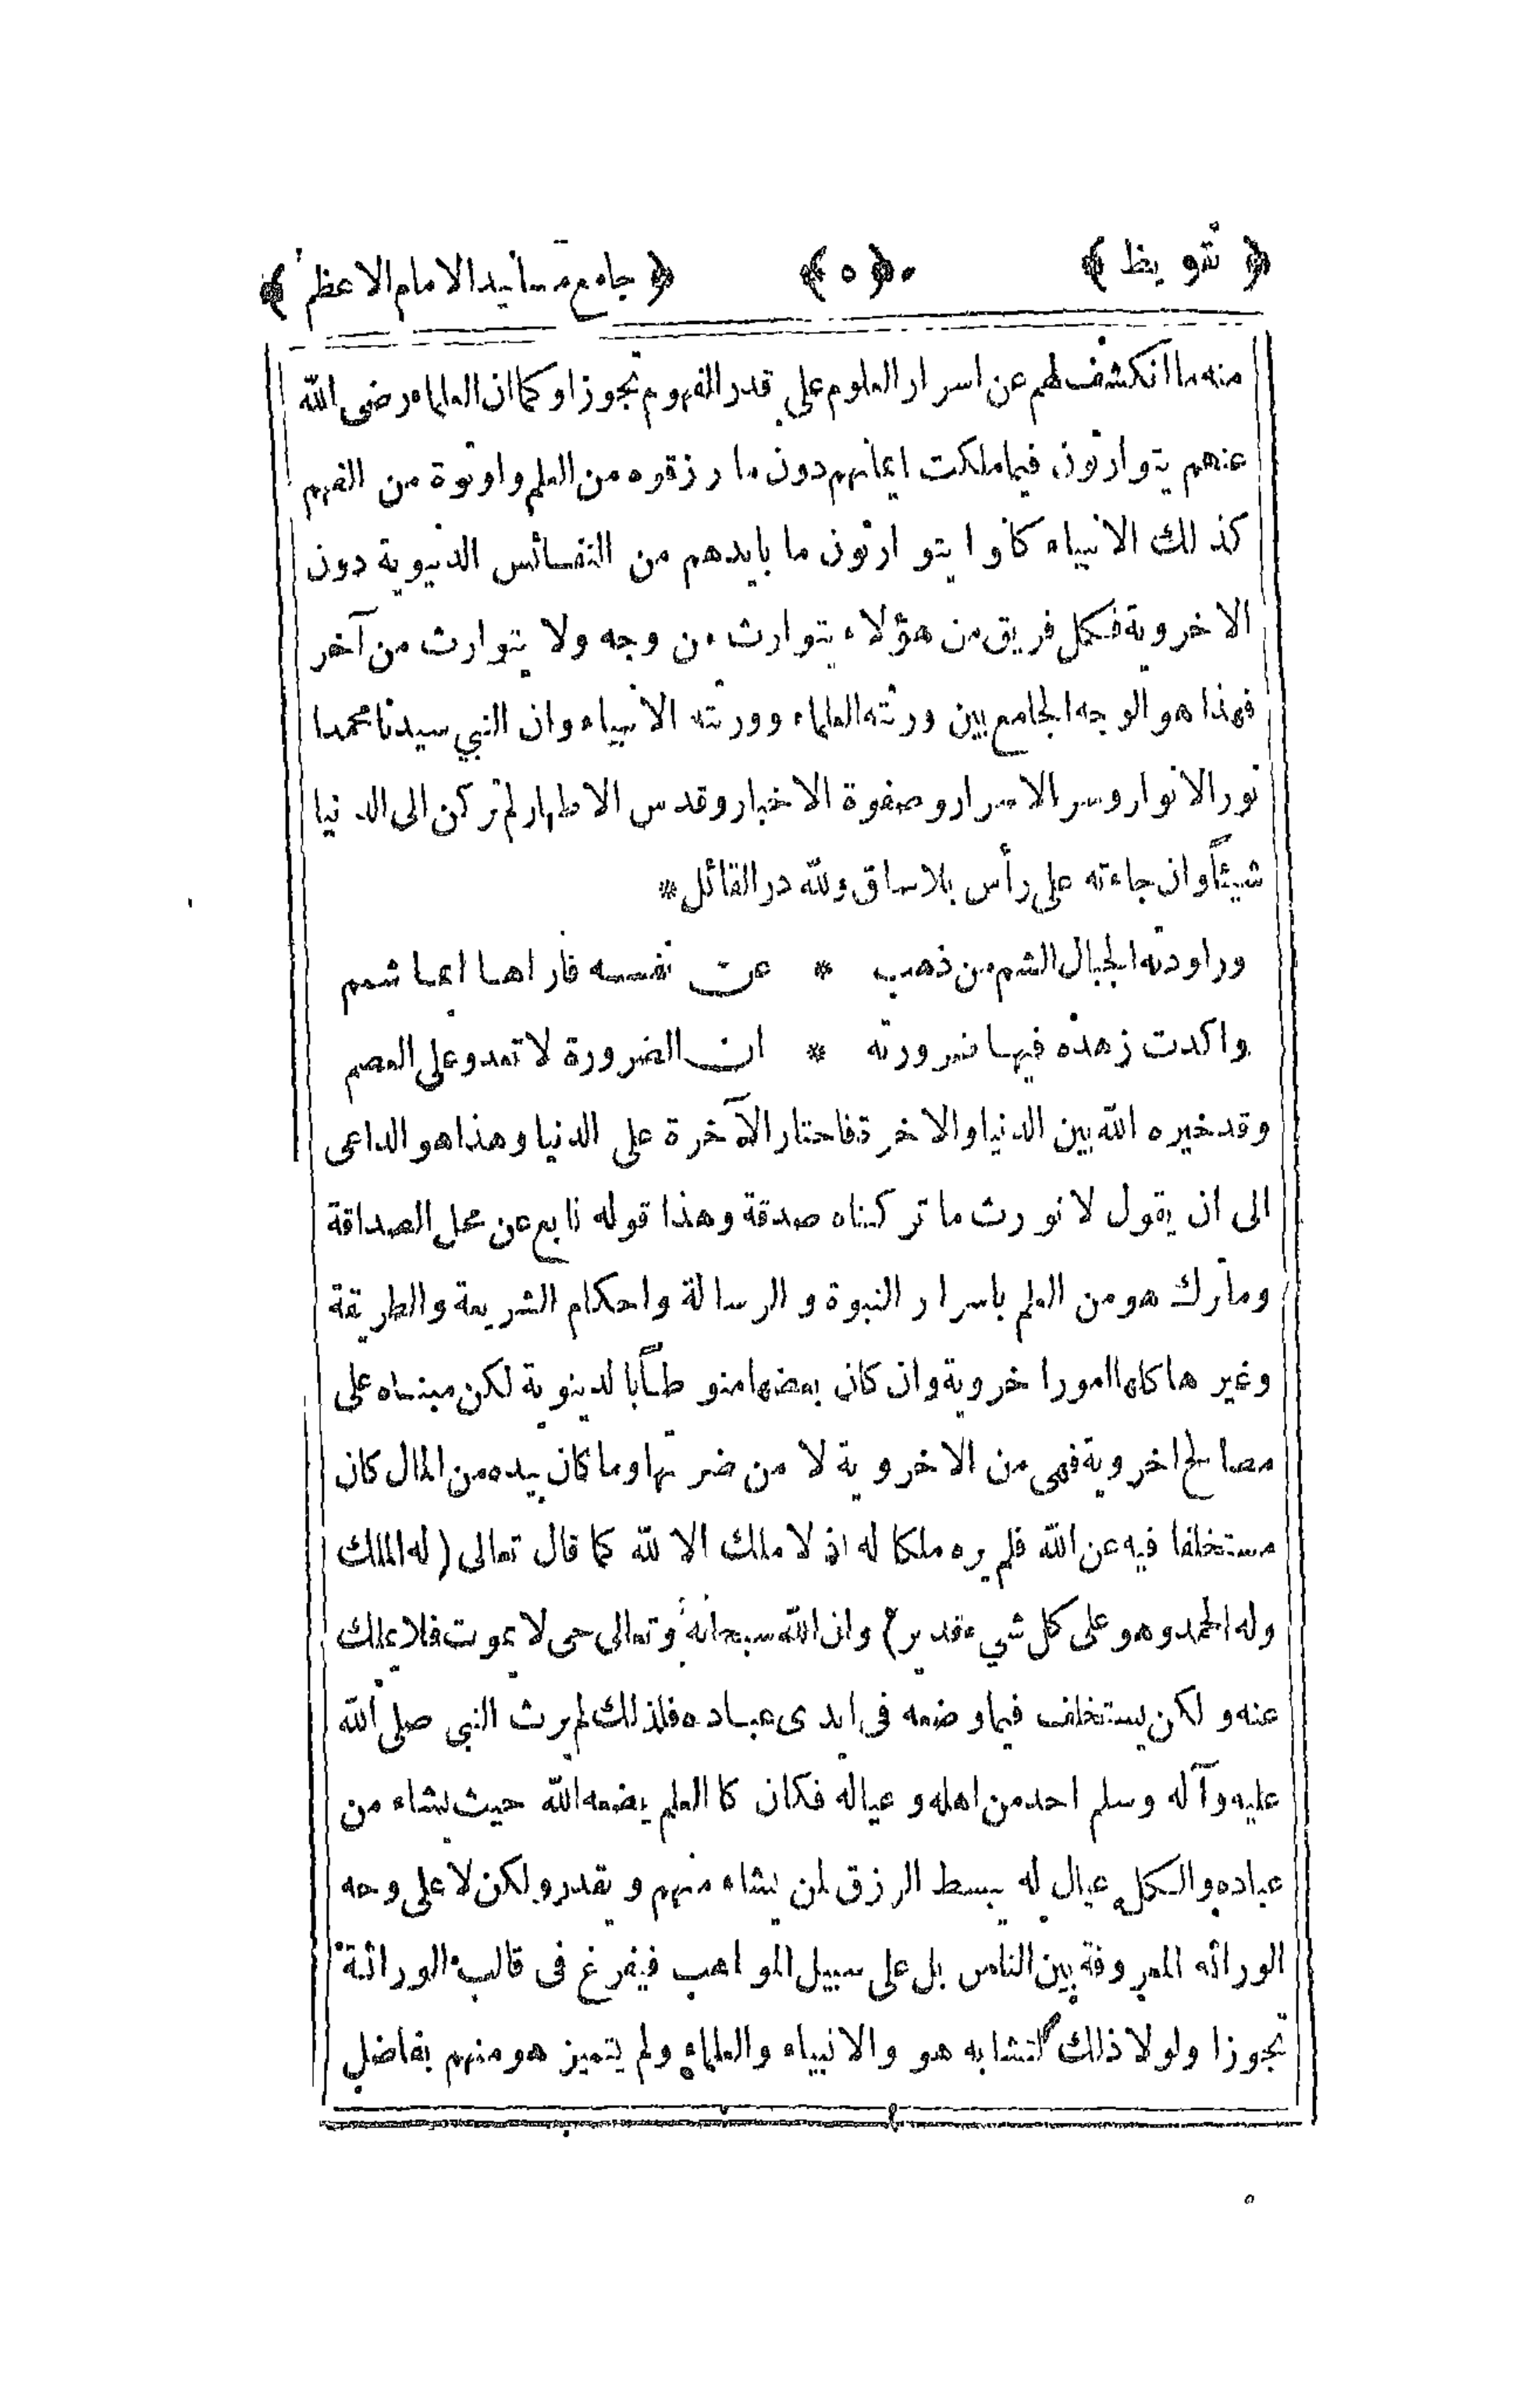 ﴿ تقريظ ﴾ ﴿ ٥ ﴾ ﴿ جامع مسانيد الامام الاعظم ﴾
منه ما انكشف لهم عن اسرار العلوم على قدر الفهوم تجوزا وكما ان العلماء رضى الله
عنهم يتوارثون فيما ملكت ايمانهم دون ما رزقوه من العلم واوتوة من الفهم
كذلك الانبياء كانوا يتوارثون ما بايدهم من النفائس الدنيوية دون
الاخروية فكل فريق من هؤلاء يتوارث من وجه ولا يتوارث من آخر
فهذا هو الوجه الجامع بين ورثته العلماء وورثته الانبياء وان النبي سيدنا محمدا
نور الانوار وسر الاسرار وصفوة الاخيار وقدس الاطهار لم تركن الى الدنيا
شيئاً وان جاءته على رأس بلا ساق ولله در القائل *
وراودته الجبال الشم من ذهب * عن نفسه فاراها ايما شمم
واكدت زهده فيها ضرورته * ان الضرورة لا تعدو على العصم
وقد خيره الله بين الدنيا والاخرة فاختار الآخرة على الدنيا وهذا هو الداعى
الى ان يقول لا نورث ما تركناه صدقة وهذا قوله نابع عن محل الصداقة
وما ترك هو من العلم باسرار النبوة والرسالة واحكام الشريعة والطريقة
وغيرها كلها امور اخروية وان كان بعضها منوطاً بالدينوية لكن مبناه على
مصالح اخروية فهى من الاخروية لا من ضرتها وما كان بيده من المال كان
مستخلفا فيه عن الله فلم يره ملكا له اذ لا ملك الا لله كما قال تعالى (له الملك
وله الحمد وهو على كل شيء قدير) وان الله سبحانه وتعالى حى لا يموت فلا يملك
عنه ولكن يستخلف فيما وضعه فى ايدى عباده فلذلك لم يرث النبي صلى الله
عليه وآله وسلم احد من اهله وعياله فكان كالعلم يضعه الله حيث يشاء من
عباده والكل عيال له يبسط الرزق لمن يشاء منهم ويقدر ولكن لا على وجه
الوراثه المعروفة بين الناس بل على سبيل المواهب فيفرغ فى قالب الوراثة
تجوزا ولولا ذلك لتشابه هو والانبياء والعلماء ولم يتميز هو منهم بفاضل